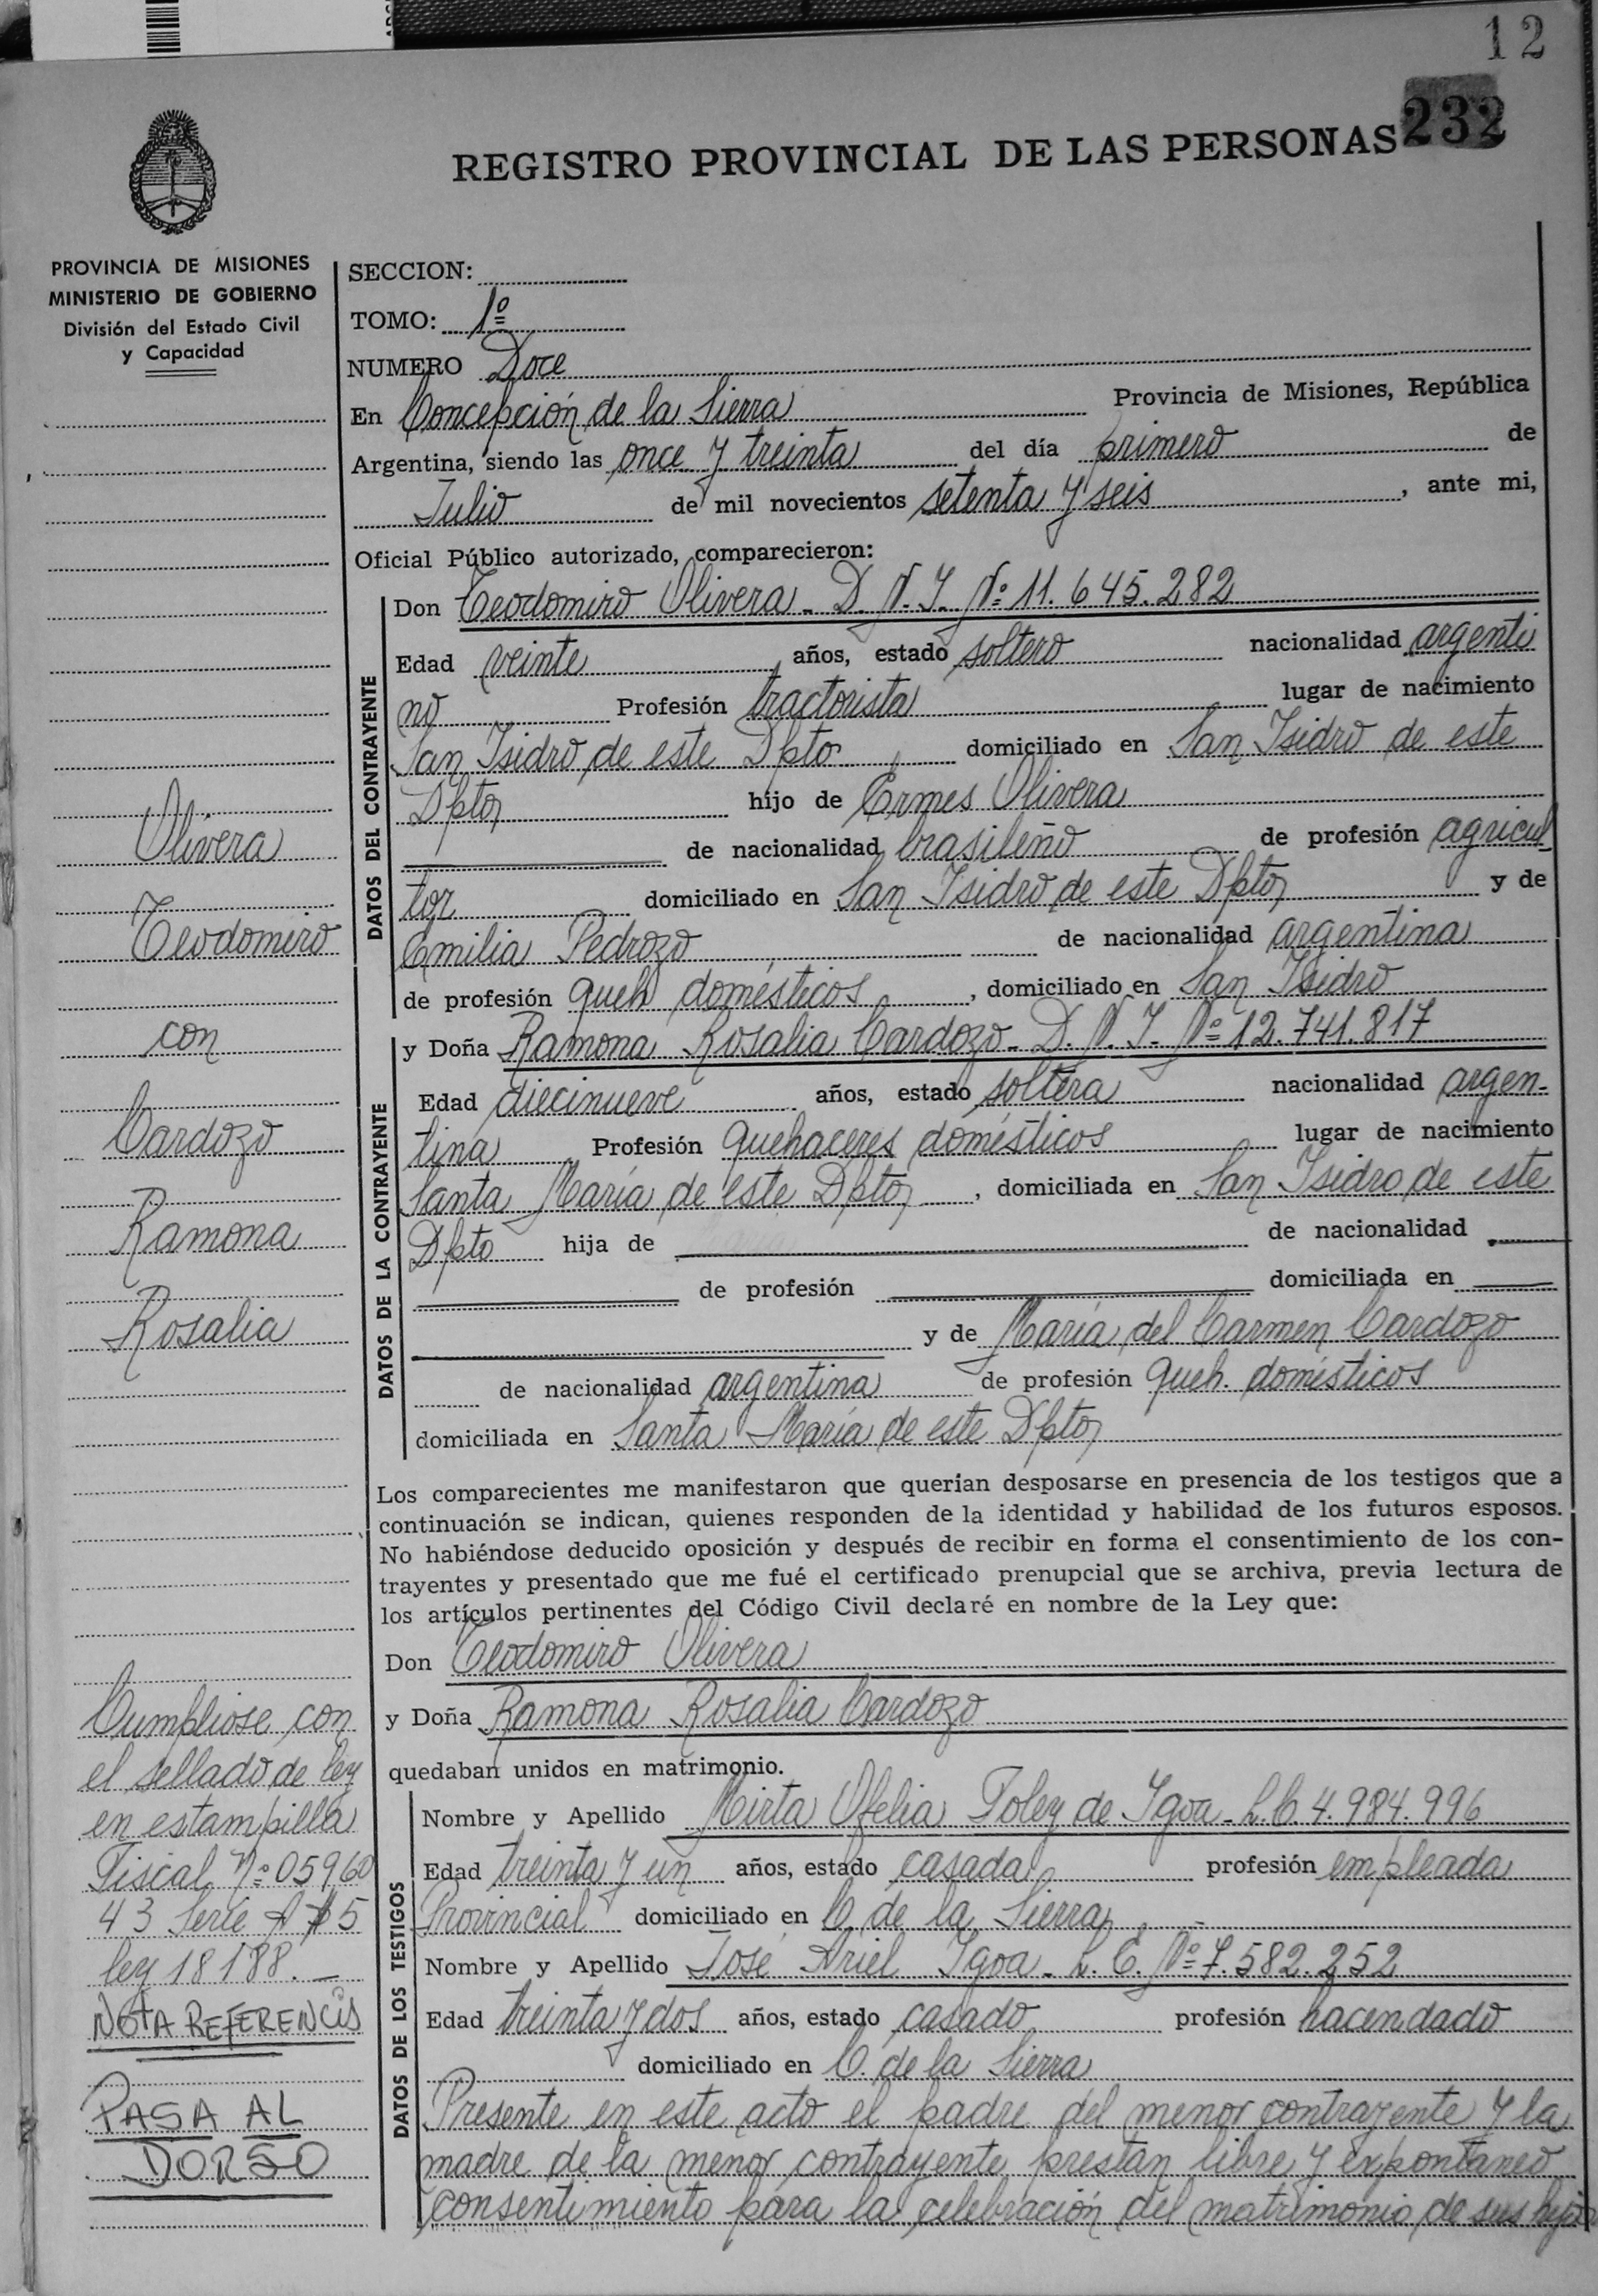 12
232
REGISTRO PROVINCIAL DE LAS PERSONAS
PROVINCIA DE MISIONES
MINISTERIO DE GOBIERNO
División del Estado Civil
y Capacidad
SECCION:
TOMO: 1º
NUMERO Doce
En Concepción de la Sierra Provincia de Misiones, República
Argentina, siendo las once y treinta del día primero de
Julio de mil novecientos setenta y seis, ante mi,
Oficial Público autorizado, comparecieron:
DATOS DEL CONTRAYENTE
Don Teodomiro Olivera - D. N. I. Nº 11.645.282
Edad veinte años, estado soltero nacionalidad argenti
no Profesión tractorista lugar de nacimiento
San Isidro de este Dpto domiciliado en San Isidro de este
Dpto, hijo de Ermes Olivera
de nacionalidad brasileño de profesión agricul
tor domiciliado en San Isidro de este Dpto, y de
Emilia Pedrozo de nacionalidad argentina
de profesión queh domésticos, domiciliado en San Isidro
DATOS DE LA CONTRAYENTE
y Doña Ramona Rosalia Cardozo - D. N. I. Nº 12.741.817
Edad diecinueve años, estado soltera nacionalidad argen-
tina Profesión quehaceres domésticos lugar de nacimiento
Santa María de este Dpto, domiciliada en San Isidro de este
Dpto hija de de nacionalidad
de profesión domiciliada en
y de María del Carmen Cardozo
de nacionalidad argentina de profesión queh. domésticos
domiciliada en Santa María de este Dpto,
Los comparecientes me manifestaron que querían desposarse en presencia de los testigos que a
continuación se indican, quienes responden de la identidad y habilidad de los futuros esposos.
No habiéndose deducido oposición y después de recibir en forma el consentimiento de los con-
trayentes y presentado que me fué el certificado prenupcial que se archiva, previa lectura de
los artículos pertinentes del Código Civil declaré en nombre de la Ley que:
Don Teodomiro Olivera
y Doña Ramona Rosalia Cardozo
quedaban unidos en matrimonio.
DATOS DE LOS TESTIGOS
Nombre y Apellido Mirta Ofelia Foley de Igoa - L.C. 4.984.996
Edad treinta y un años, estado casada profesión empleada
Provincial domiciliado en C. de la Sierra
Nombre y Apellido José Ariel Igoa - L. E. Nº 7.582.252
Edad treinta y dos años, estado casado profesión hacendado
domiciliado en C. de la Sierra
Presente en este acto el padre del menor contrayente y la
madre de la menor contrayente prestan libre y expontaneo
consentimiento para la celebración del matrimonio de sus hijos
Olivera
Teodomiro
con
Cardozo
Ramona
Rosalia
Cumpliose con
el sellado de ley
en estampilla
Fiscal Nº 05960
43 Serie A $5
ley 18188.-
NOTA REFERENCIS
PASA AL
DORSO